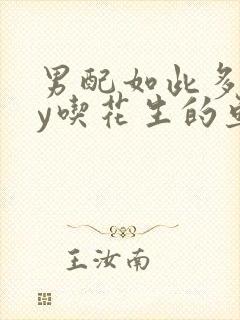 男配如此多
y喫花生的
王汝南